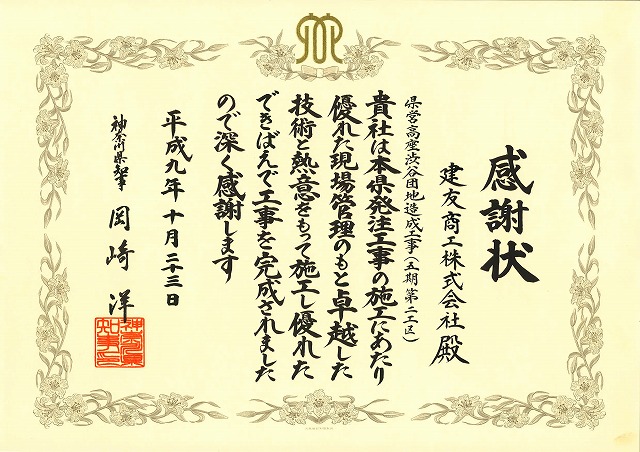 感謝状
建友商工株式会社 殿
県営高座渋谷団地造成工事(五期第二工区)
貴社は本県発注工事の施工にあたり
優れた現場管理のもと卓越した
技術と熱意をもって施工し優れた
できばえで工事を完成されました
ので深く感謝します
平成九年十月二十三日
神奈川県知事 岡崎 洋